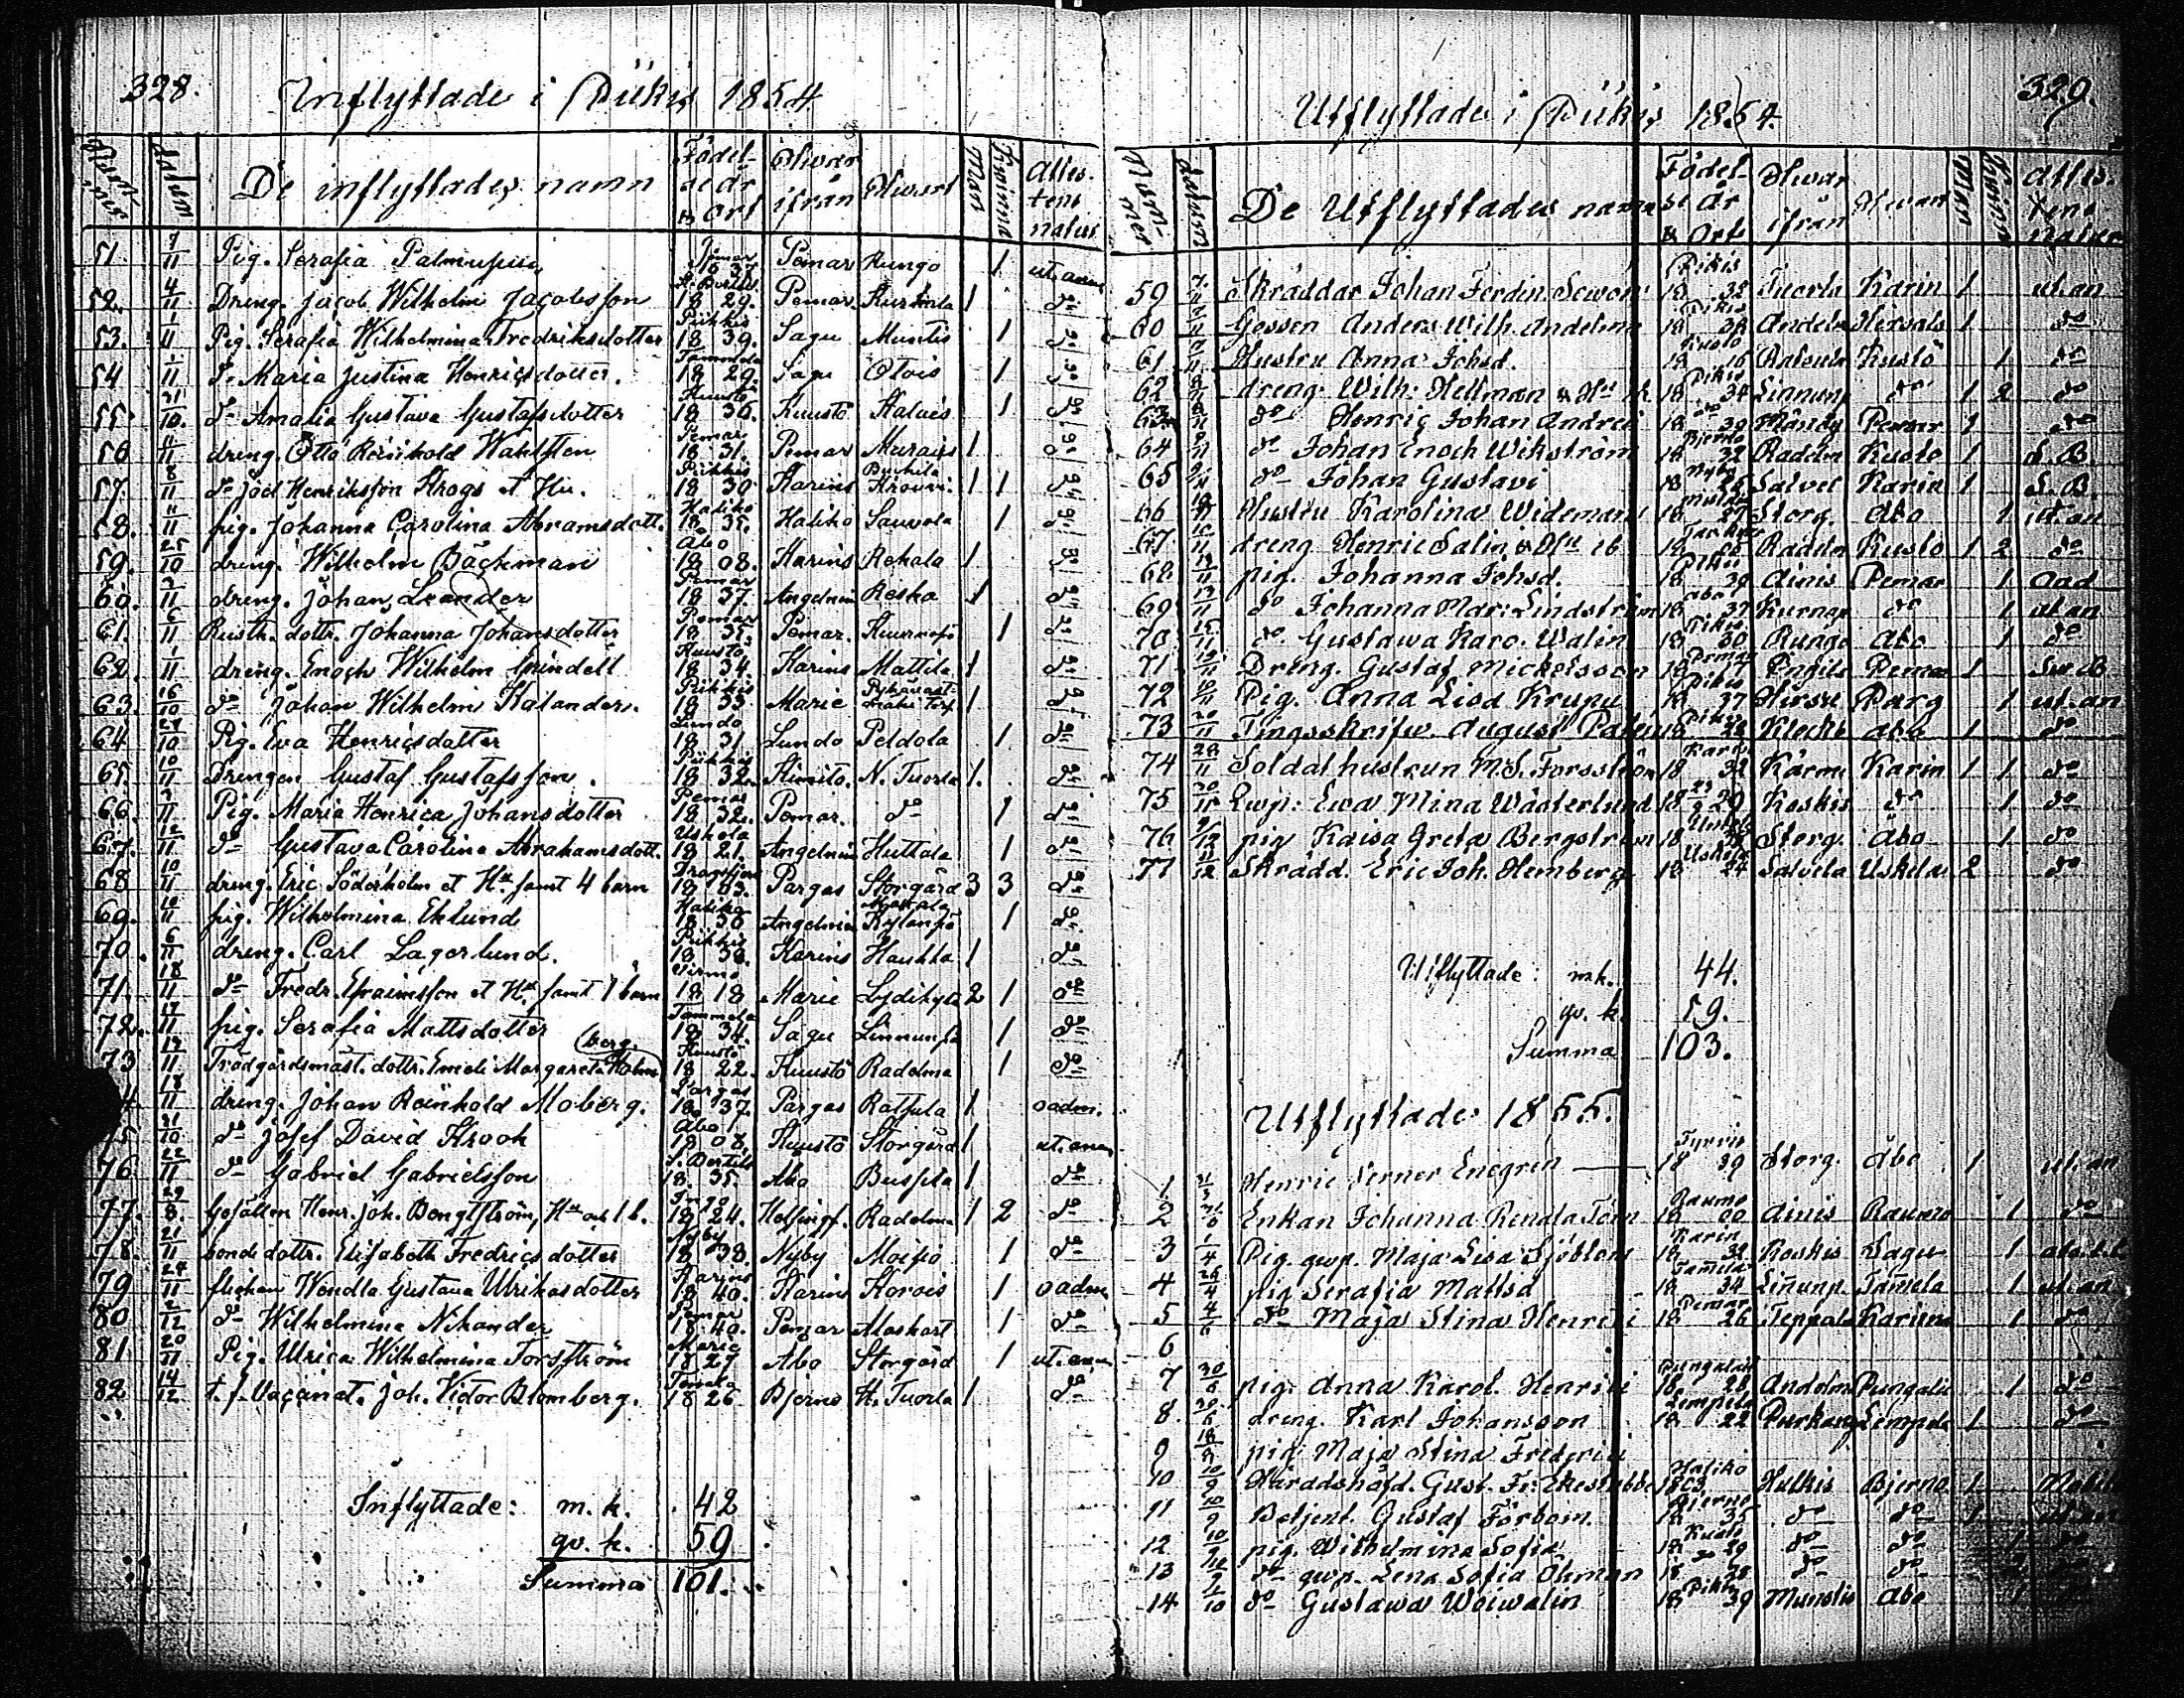 328.
Inflyttade i Piikis 1854
Nummer datum De inflyttades namn Födelse år & Ort Hwar ifrån Hwart Man Kvinna Attestens natur
51. 7/11 Pig. Serafia Pemar 18 37 Pemar Rungo 1 ut. anm
52. 4/11 Dreng. Jacob Wilhelm Jacobsson 18 29. Pemar 1 do
53. 1/11 Pig. Serafia Wilhelmina Fredriksdotter Piikkis 18 39. Sagu Muntis 1 do
54 1/11 do Maria Justina Henricsdotter. Tammela 18 29. Sagu Otois 1 do
55. 31/10. do Amalia Gustava Gustafsdotter Kuustö 18 36. Kuustö Halais 1 do
56 11/11 dreng. Otto Reinhold Wahlsten Pemar 18 31. Pemar Murais 1 do
57. 8/11 do Joel Henriksson Krogs et Hu. Piikkis 18 30 Karins Krouvi. 1 1 do
58. 11/11 pig. Johanna Carolina Abramsdott. Haliko 18 35. Haliko Sauvola 1 do
59. 25/10 dreng. Wilhelm Bäckman Abo 18 08. Karins Rekala 1 do
60. 2/11 dreng. Johan Leander Pemar 18 37. Angelniemi Reska 1 do
61. 6/11 Rusth. dottr. Johanna Johansdotter Pemar 18 35. Pemar. 1 do
62. 1/11 dreng. Enoch Wilhelm Grindell Kuustö 18 34. Karins Mattila 1 do
63. 16/10 do Johan Wilhelm Kalander. Piikkis 18 33 Marie 1 do
64 27/10 Pig. Eva Henricsdotter Lundo 18 31 Lundo Peldola 1 do
65. 10/11 Drengen Gustaf Gustafsson. Piikkis 18 32. Kimito. N. Tuorla 1. do
66. 2/11 Pig. Maria Henrica Johansdotter Pemar 18 32. Pemar. do 1 do
67. 12/11 do Gustava Carolina Abrahamsdott. Uskela 18 21. Angelniemi Huttala 1 do
68 10/11 dreng. Eric Söderholm et Hu samt 4 barn Dragsfjerd 18 03. Pargas Storgård 3 3 do
69. 10/11 pig. Wilhelmina Eklund Haliko 18 36 Angelniemi 1 do
70. 6/11 dreng. Carl Lagerlund. Piikkis 18 38. Karins Haukka 1 do
71. 18/11 do Fredr. Efraimsson et Hu samt 1 barn Virmo 18 18 Marie 2 1 do
72. 17/11 pig. Serafia Mattsdotter Tammela 18 34. Sagu Linnunpä 1 do
73 17/11 Trädgårdsmäst. dottr. Emeli Margareta Holmberg. Kuustö 18 22. Kuustö Radelma 1 do
4. 18/11 dreng. Johan Reinhold Moberg. Pargas 18 37. Pargas Ratsula 1 oadm.
75. 31/10 do Josef David Krook Abo 18 08. Kuustö Storgård 1 ut. anm
76 22/11 do Gabriel Gabrielsson S. Bertils 18. 35. Abo Bussila 1 do
77. 29/8. Gesällen Henr. Joh. Bengtström, Hu och 1 b. 18 24. Helsingf. Radelma 1 2 do
78. 21/11 bonde dottr. Elisabeth Fredrics dotter Nyby 18 38. Nyby Moisio 1 do
79 24/11 flickan Wendla Gustava Ulrikasdotter Karins 18 40. Karins Korois 1 oadm
80 2/12 do Wilhelmina Nikander Pemar 18 40. Pemar Moskart 1 do
81. 20/11 Pig. Ulrica Wilhelmina Forsström Marie 18 27 Abo Storgård 1 ut. anm
82 14/12 t. f. Vaccinat. Joh. Victor Blomberg. 18 26 Bjerno H. Tuorla 1 do
Inflyttade: m. k. 42
qv. k. 59
Summa 101.
329.
Utflyttade i Piikis 1854.
Nummer datum De Utflyttades namn Födelse år & Ort Hwar ifrån Hwart Man Kvinna Attestens natur
59 7/11 Skräddar Johan Ferdin. Sewon Pikis 18 32 Tuorla Karin 1 ut. an
60 Gossen Anders Wilh. Andelin Pikis 18 38 1 do
61 Hustru Anna Johsd. Kusto 18 16 Kustö 1 do
62 dreng Wilh. Hellman & Hu Pikis 18 34 Linnunp do 1 2 do
63 do Henric Johan Andrei do 18 39 Pemar 1 do
64 do Johan Enoch Wikström Bjerno 18 32 Radelm Kusto 1 S. B.
65 do Johan Gustavi Nyby 18 26 Salvel Karin 1 S. B.
66 Hustru Karolina Wideman 18 27 Storg. Abo 1 ut. an
67 dreng Henric Salin & Hu 1b 18 Radelm Kusto 1 2 do
68 pig. Johanna Johsd. Pikis 18 39 Ainis Pemar 1 Oad
69 13/11 do Johanna Mar: Lindström Abo 18 37 do 1 ut. an
70 15/11 do Gustawa Karo. Walin Pikis 18 30 Rungo Abo 1 do
71 Dreng. Gustaf Mickelsson Pemar 18 Pemar 1
72 Pig. Anna Lisa Krupu Pikis 18 37 Parg 1 ut. an
73 20/11 Tingsskrifw. August Pikis 18 Abo 1 do
74 28/11 Soldathustrun M. S. Forsström Karin 18 32 Karin 1 1 do
75 30/11 Qwp: Ewa Mina Wästerlund 18 29 Koskis do 1 do
76 pig Kaisa Greta Bergström 18 Storg. Åbo 1 do
77 11/12 Skrädd. Eric Joh. Hemberg Uskela 18 24 Salvela Uskela 2 do
Utflyttade: mk. 44.
qv. k. 59.
Summa 103.
Utflyttade 1855.
1 Henric Verner Enegren 18 39 Storg. Åbo 1 ut. an
2 Enkan Johanna Renata Törn Raumo 18 00 Ainis Raumo 1 do
3 1/4 Pig. qwp. Maja Lisa Sjöblom Karin 18 32 Koskis Sagu 1
4 26/4 pig Serafia Mattsd Tamela 18 34 Linunp. Tamela 1 ut. an
5 4/6 do Maja Stina Henrici Pemar 18 26 Teppala Karins 1 do
6
7 30/6 pig. Anna Karol. Henrici 18 28 1 do
8. 30/6 dreng. Karl Johansson Lempela 18 22 Lempela 1 do
9 18/9 pig Maja Stina Frederici
10 10/9 Häradshöfd. Gust. Fr: Ekestubbe Haliko 1803 Hulkis Bjerno. 1
11 10/9 Betjent. Gustaf Förbom. Bjerno 18 35 do do 1
12 10/9 pig. Wilhelmina Sofia Kusto 18 29 do do 1
13 do qwp. Lena Sofia Öhman 18 28 do do
14 1/10 do Gustawa Woiwalin Pikis 18 39 Munstis Abo